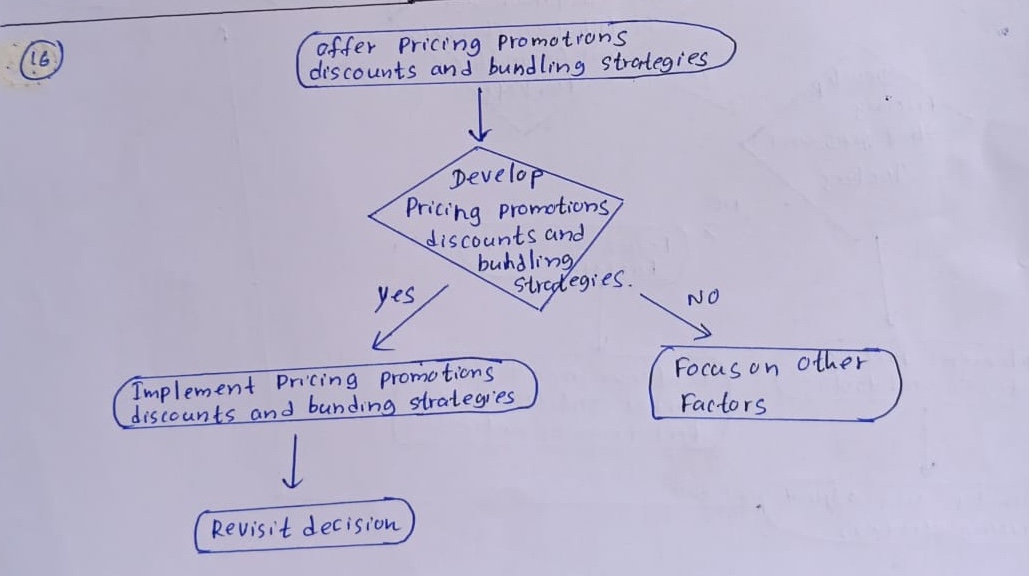 16
offer Pricing Promotions
discounts and bundling strategies
Develop
Pricing promotions
discounts and
bundling
strategies.
Yes
NO
Implement Pricing promotions
discounts and bunding strategies
Focus on other
Factors
Revisit decision